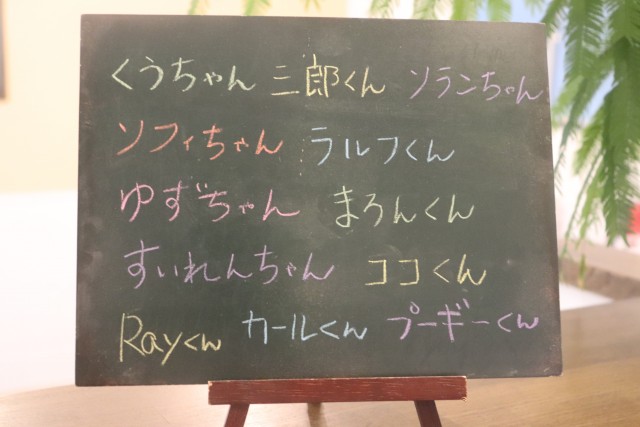 くうちゃん 三郎くん ソランちゃん
ソフィちゃん ラルフくん
ゆずちゃん まろんくん
すいれんちゃん ココくん
Rayくん カールくん プーギーくん